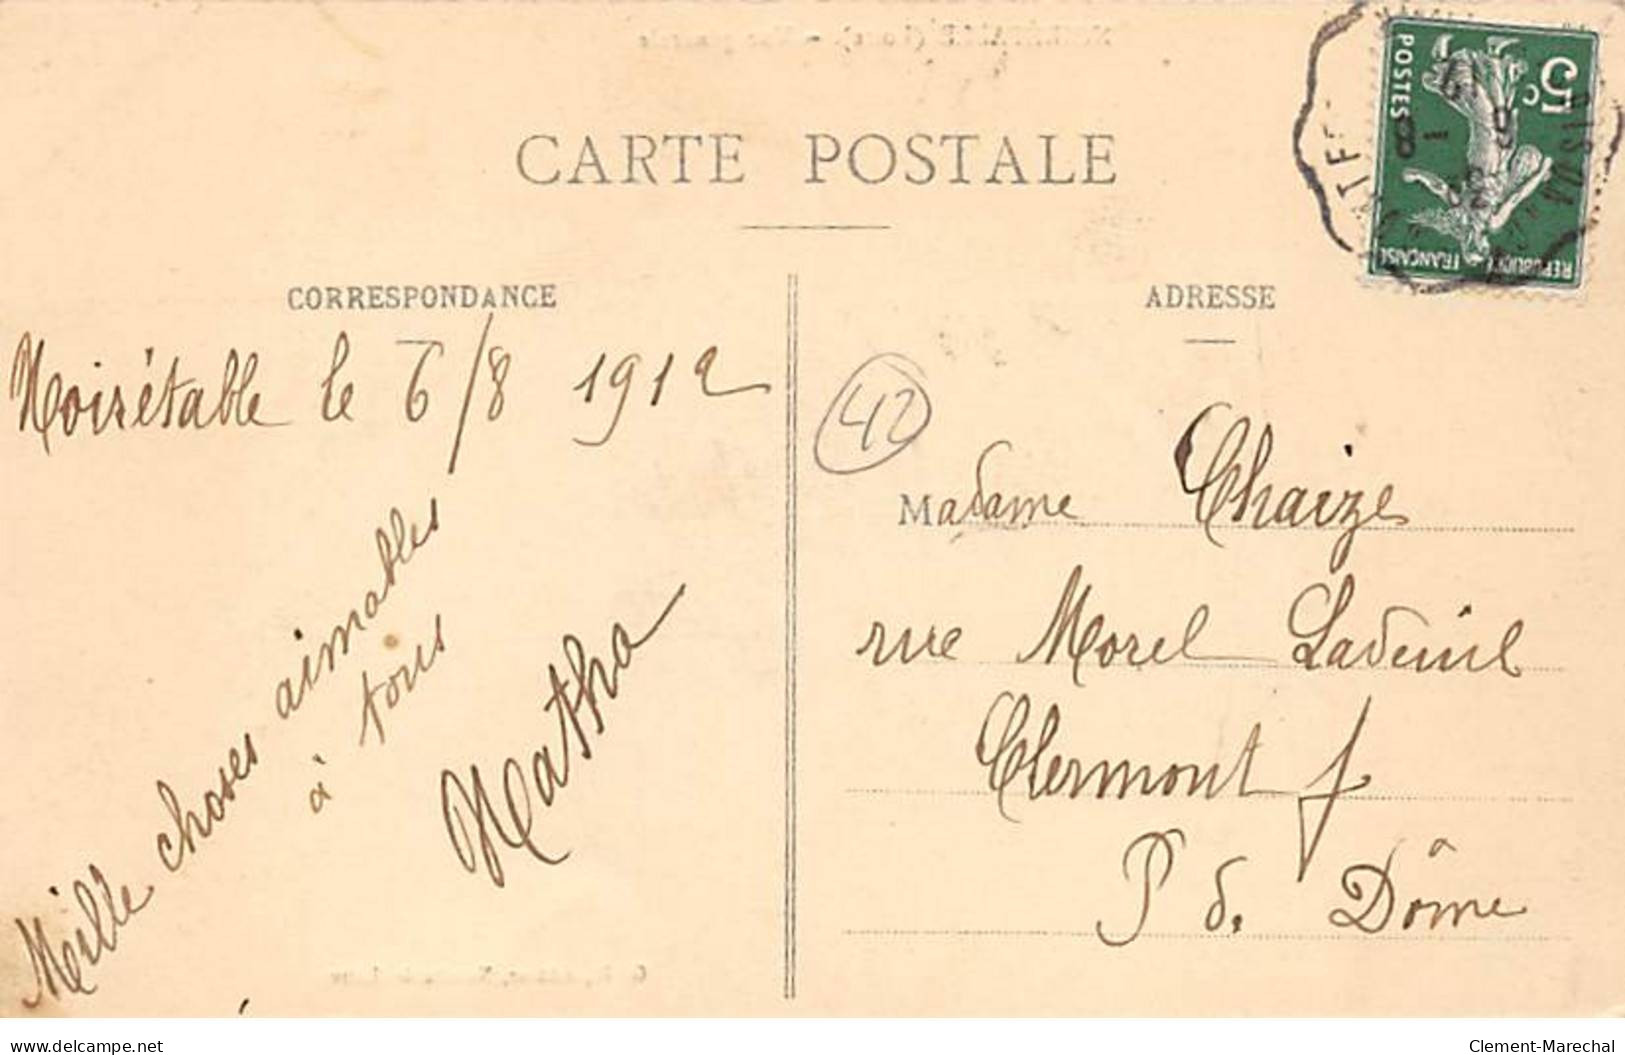 CARTE POSTALE
CORRESPONDANCE
Noirétable le 6/8 1912
Mille choses aimables
à tous
Matha
ADRESSE
5c
POSTES
REPUBLIQUE FRANÇAISE
42
Madame Chaize
rue Morel Ladeuil
Clermont f
P. d. Dôme
delcampe.net
Clement-Marechal